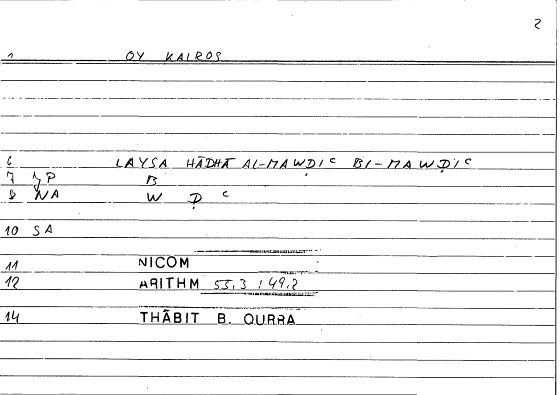 2
1 OY KAIROS
6 LAYSA HĀDHĀ AL-MAWḌIᶜ BI-MAWḌIᶜ
7 1,P B
8 NA W Ḍ ᶜ
10 SA
11 NICOM
12 ARITHM 53.3 : 49.2
14 THĀBIT B. QURRA